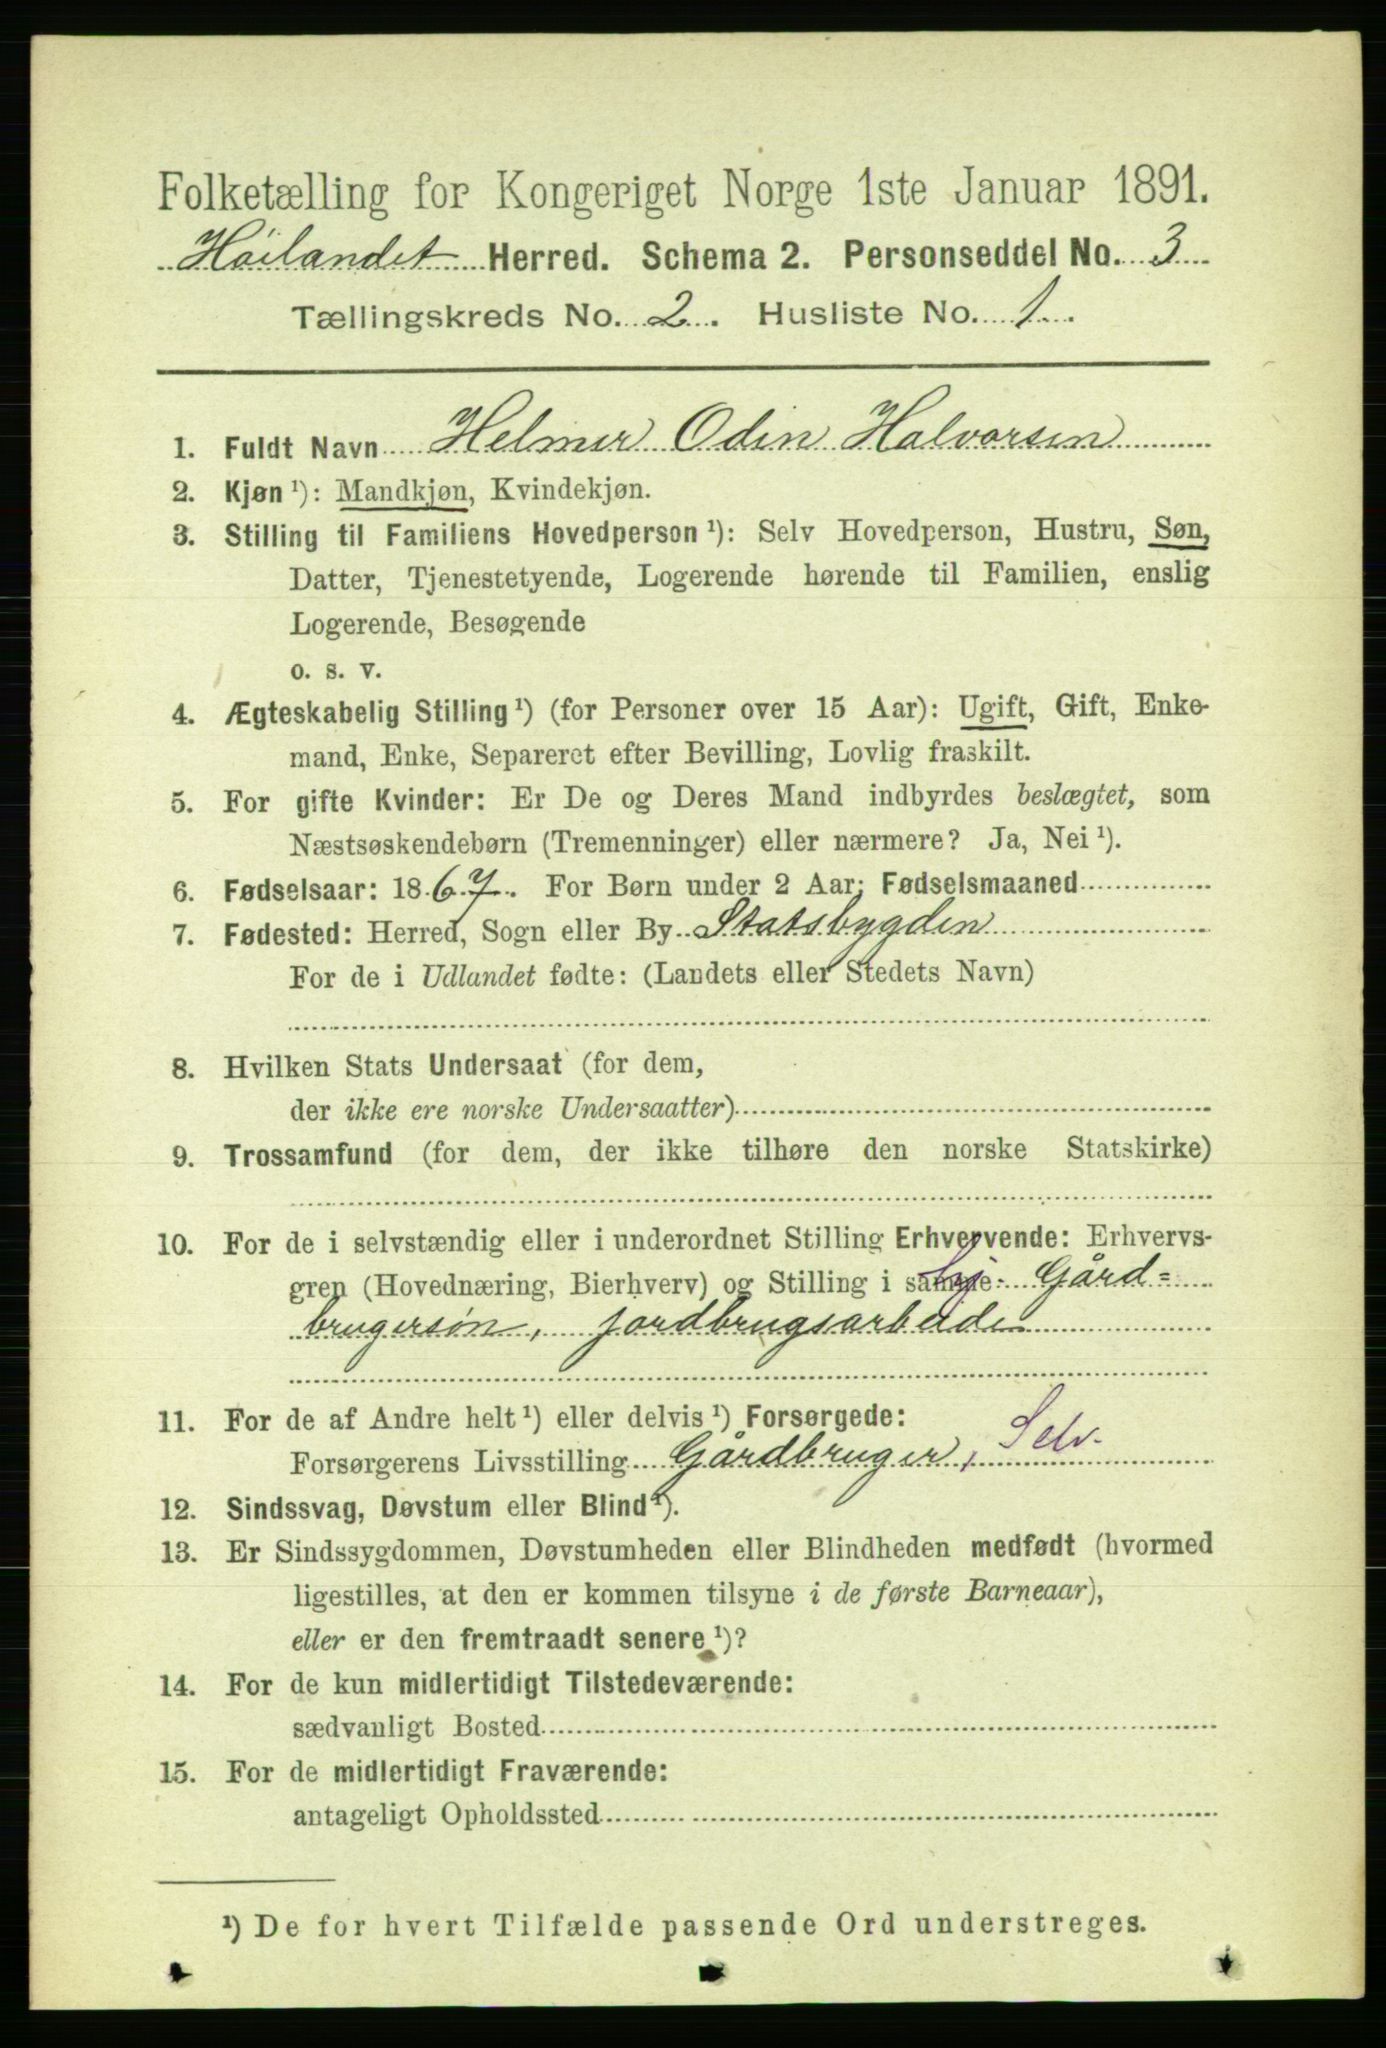 Folketælling for Kongeriget Norge 1ste Januar 1891.
Höilandet Herred. Schema 2. Personseddel No. 3
Tællingskreds No. 2. Husliste No. 1.
1. Fuldt Navn Helmer Odin Halvorsen
2. Kjøn ¹): Mandkjøn, Kvindekjøn.
3. Stilling til Familiens Hovedperson ¹): Selv Hovedperson, Hustru, Søn,
Datter, Tjenestetyende, Logerende hørende til Familien, enslig
Logerende, Besøgende
o. s. v.
4. Ægteskabelig Stilling ¹) (for Personer over 15 Aar): Ugift, Gift, Enke-
mand, Enke, Separeret efter Bevilling, Lovlig fraskilt.
5. For gifte Kvinder: Er De og Deres Mand indbyrdes beslægtet, som
Næstsøskendebørn (Tremenninger) eller nærmere? Ja, Nei ¹).
6. Fødselsaar: 1867. For Børn under 2 Aar: Fødselsmaaned
7. Fødested: Herred, Sogn eller By Statsbygden
For de i Udlandet fødte: (Landets eller Stedets Navn)
8. Hvilken Stats Undersaat (for dem,
der ikke ere norske Undersaatter)
9. Trossamfund (for dem, der ikke tilhøre den norske Statskirke)
10. For de i selvstændig eller i underordnet Stilling Erhvervende: Erhvervs-
gren (Hovednæring, Bierhverv) og Stilling i samme Gård=
brugersön, jordbrugsarbeide
11. For de af Andre helt ¹) eller delvis ¹) Forsørgede:
Forsørgerens Livsstilling Gårdbruger, Selv.
12. Sindssvag, Døvstum eller Blind ¹).
13. Er Sindssygdommen, Døvstumheden eller Blindheden medfødt (hvormed
ligestilles, at den er kommen tilsyne i de første Barneaar),
eller er den fremtraadt senere ¹)?
14. For de kun midlertidigt Tilstedeværende:
sædvanligt Bosted
15. For de midlertidigt Fraværende:
antageligt Opholdssted
¹) De for hvert Tilfælde passende Ord understreges.